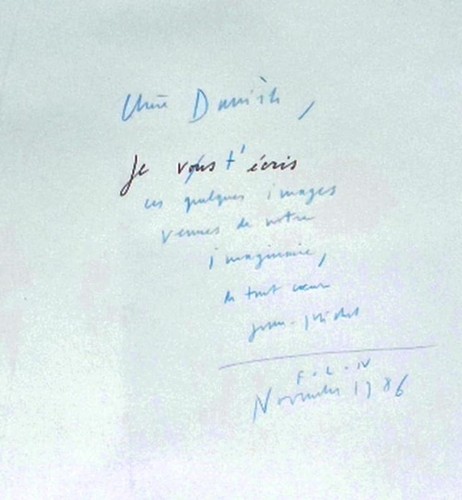 Chère Danièle,
Je vous t'écris
ces quelques images
venues de notre
imaginaire,
de tout cœur
Jean-Michel
F.L.IV
Novembre 1986